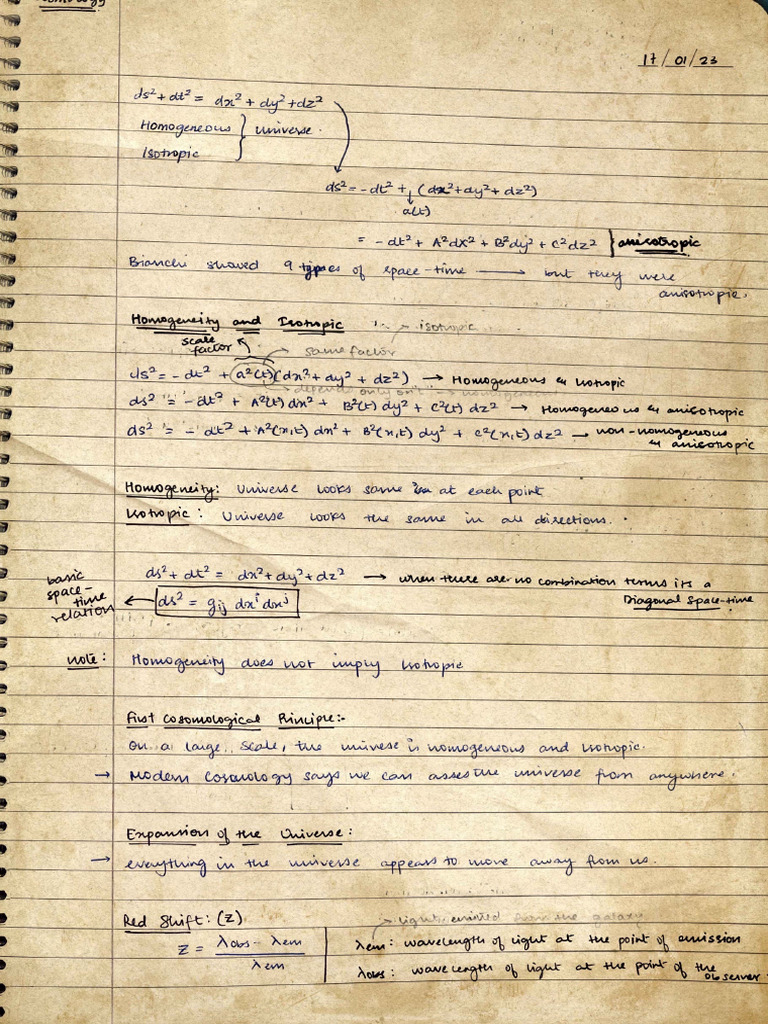 17/01/23
ds² + dt² = dx² + dy² + dz²
Homogeneous } Universe.
Isotropic
ds² = -dt² + (dx² + dy² + dz²)
a(t)
= -dt² + A²dx² + B²dy² + C²dz² } anisotropic
Bianchi showed 9 types of space-time → but they were
anisotropic.
Homogeneity and Isotropic → isotropic
scale factor
same factor
ds² = -dt² + a²(t)(dx² + dy² + dz²) → Homogeneous & Isotropic
depends only on t → homogeneous
ds² = -dt² + A²(t)dx² + B²(t)dy² + C²(t)dz² → Homogeneous & anisotropic
ds² = -dt² + A²(x,t)dx² + B²(x,t)dy² + C²(x,t)dz² → non-homogeneous
& anisotropic
Homogeneity: Universe looks same at each point
Isotropic: Universe looks the same in all directions.
ds² + dt² = dx² + dy² + dz² → when there are no combination terms its a
Diagonal Space-time
basic space-time relation ← ds² = gij dxⁱ dxʲ
note: Homogeneity does not imply Isotropic
First Cosomological Principle:-
On a large scale, the universe is homogeneous and Isotropic.
→ Modern Cosmology says we can assess the universe from anywhere.
Expansion of the Universe:
→ everything in the universe appears to move away from us.
Red Shift: (Z) → light emitted from the galaxy
Z = λobs - λem / λem
λem: wavelength of light at the point of emission
λobs: wavelength of light at the point of the observer